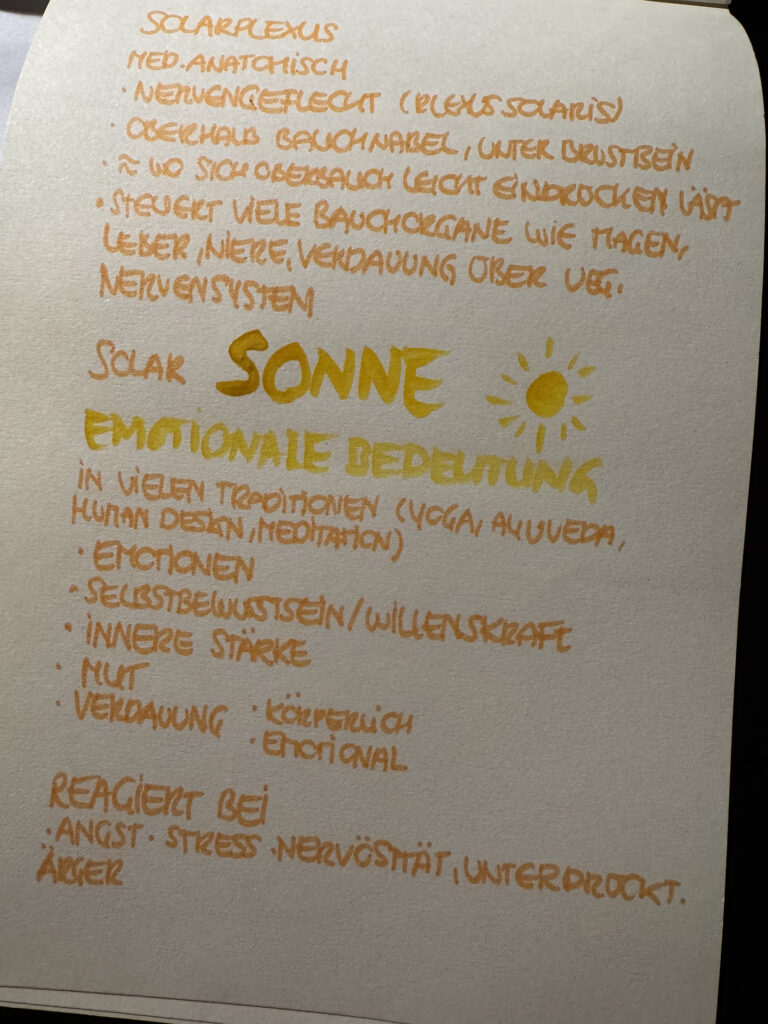 SOLARPLEXUS
MED. ANATOMISCH
· NERVENGEFLECHT (PLEXUS SOLARIS)
· OBERHALB BAUCHNABEL, UNTER BRUSTBEIN
· ≈ WO SICH OBERBAUCH LEICHT EINDRÜCKEN LÄSST
· STEUERT VIELE BAUCHORGANE WIE MAGEN,
LEBER, NIERE, VERDAUUNG ÜBER VEG.
NERVENSYSTEM
SOLAR SONNE
EMOTIONALE BEDEUTUNG
IN VIELEN TRADITIONEN (YOGA, AYUVEDA,
HUMAN DESIGN, MEDITATION)
· EMOTIONEN
· SELBSTBEWUSSTSEIN/WILLENSKRAFT
· INNERE STÄRKE
· MUT
· VERDAUUNG · KÖRPERLICH
· EMOTIONAL
REAGIERT BEI
· ANGST · STRESS · NERVÖSITÄT, UNTERDRÜCKT.
ÄRGER